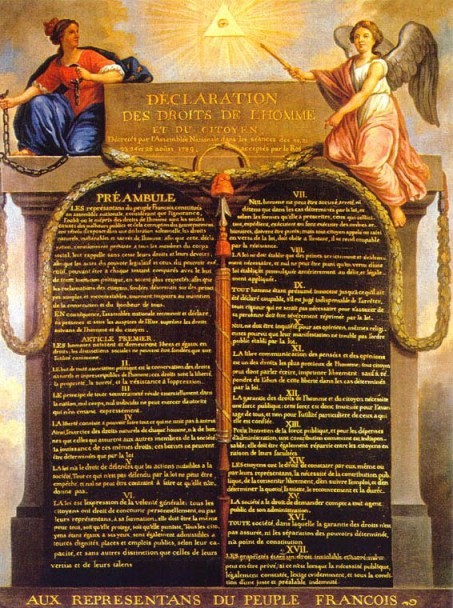 DÉCLARATION
DES DROITS DE L'HOMME
ET DU CITOYEN,
Décrétés par l'Assemblée Nationale dans les séances des 20, 21,
23, 24 et 26 août 1789, acceptés par le Roi
PRÉAMBULE
LES représentans du peuple François constitués
en assemblée nationale, considérant que l'ignorance,
l'oubli ou le mépris des droits de l'homme sont les seules
causes des malheurs publics et de la corruption des gouvernemens
ont résolu d'exposer dans une déclaration solemnelle, les droits
naturels, inaliénables et sacrés de l'homme; afin que cette décla-
ration, constamment présente à tous les membres du corps
social, leur rappelle sans cesse leurs droits et leurs devoirs;
afin que les actes du pouvoir législatif et ceux du pouvoir exé-
cutif, pouvant être à chaque instant comparés avec le but
de toute institution politique, en soient plus respectés; afin que
les réclamations des citoyens, fondées désormais sur des princi-
pes simples et incontestables, tournent toujours au maintien
de la constitution et du bonheur de tous.
EN conséquence, l'assemblée nationale reconnoit et déclare,
en présence et sous les auspices de l'Être suprême les droits
suivans de l'homme et du citoyen.
ARTICLE PREMIER.
LES hommes naissent et demeurent libres et égaux en
droits; les distinctions sociales ne peuvent être fondées que sur
l'utilité commune.
II.
LE but de toute association politique est la conservation des droits
naturels et imprescriptibles de l'homme; ces droits sont la liberté,
la propriété, la sureté, et la résistance à l'oppression.
III.
LE principe de toute souveraineté réside essentiellement dans
la nation, nul corps, nul individu ne peut exercer d'autorité
qui n'en émane expressément.
IV.
LA liberté consiste à pouvoir faire tout ce qui ne nuit pas à autrui
Ainsi, l'exercice des droits naturels de chaque homme, n'a de bor-
nes que celles qui assurent aux autres membres de la société
la jouissance de ces mêmes droits; ces bornes ne peuvent
être déterminées que par la loi
V.
LA loi n'a le droit de défendre que les actions nuisibles à la
société. Tout ce qui n'est pas défendu par la loi ne peut être
empêché, et nul ne peut être contraint à faire ce qu'elle n'or-
donne pas.
VI.
LA loi est l'expression de la volonté générale; tous les
citoyens ont droit de concourir personnellement, ou par
leurs représentans, à sa formation; elle doit être la même
pour tous, soit qu'elle protege, soit qu'elle punisse. Tous les citoy-
ens étant égaux à ses yeux, sont également admissibles à
toutes dignités, places et emplois publics, selon leur ca-
pacité, et sans autres distinction que celles de leurs
vertus et de leurs talens
VII.
NUL homme ne peut être accusé, arrêté, ni
détenu que dans les cas déterminés par la loi, et
selon les formes qu'elle a prescrites, ceux qui sollici-
tent, expédient, exécutent ou font exécuter des ordres ar-
bitraires, doivent être punis; mais tout citoyen appelé ou saisi
en vertu de la loi, doit obéir à l'instant, il se rend coupable
par la résistance.
VIII.
LA loi ne doit établir que des peines strictement et évidem-
ment nécessaires, et nul ne peut être puni qu'en vertu d'une
loi établie et promulguée antérieurement au délit, et légale-
ment appliquée.
IX.
TOUT homme étant présumé innocent jusqu'à ce qu'il ait
été déclaré coupable, s'il est jugé indispensable de l'arrêter,
toute rigueur qui ne serait pas nécessaire pour s'assurer de
sa personne doit être sévèrement réprimée par la loi.
X.
NUL ne doit être inquiété pour ses opinions, mêmes religi-
euses pourvu que leur manifestation ne trouble pas l'ordre
public établi par la loi.
XI.
LA libre communication des pensées et des opinions
est un des droits les plus précieux de l'homme; tout citoyen
peut donc parler, écrire, imprimer librement: sauf à ré-
pondre de l'abus de cette liberté dans les cas déterminés
par la loi.
XII.
LA garantie des droits de l'homme et du citoyen nécessite
une force publique; cette force est donc instituée pour l'avan-
tage de tous, et non pour l'utilité particulière de ceux à qui
elle est confiée.
XIII.
Pour l'entretien de la force publique, et pour les dépenses
d'administration, une contribution commune est indispen-
sable; elle doit être également répartie entre les citoyens en
raison de leurs facultés.
XIV.
LES citoyens ont le droit de constater par eux même ou
par leurs représentans, la nécessité de la contribution pub-
lique, de la consentir librement, d'en suivre l'emploi, et d'en
déterminer la quotité, l'assiette, le recouvrement et la durée.
XV.
LA société a le droit de demander compte à tout agent
public de son administration.
XVI.
TOUTE société, dans laquelle la garantie des droits n'est
pas assurée, ni la séparation des pouvoirs déterminée,
n'a point de constitution.
XVII.
LES propriétés étant un droit inviolable et sacré, nul ne
peut en être privé, si ce n'est lorsque la nécessité publique,
légalement constatée, l'exige évidemment, et sous la condi-
tion d'une juste et préalable indemnité.
AUX REPRESENTANS DU PEUPLE FRANCOIS